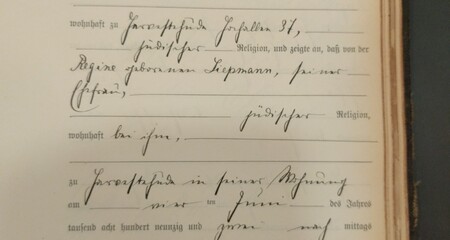 wohnhaft zu Harvestehude Hochallee 37,
jüdischer Religion, und zeigte an, daß von der
Regine geborenen Liepmann, seiner
Ehefrau,
jüdischer Religion,
wohnhaft bei ihm,
zu Harvestehude in seiner Wohnung
am vier ten Juni des Jahres
tausend acht hundert neunzig und zwei nach mittags